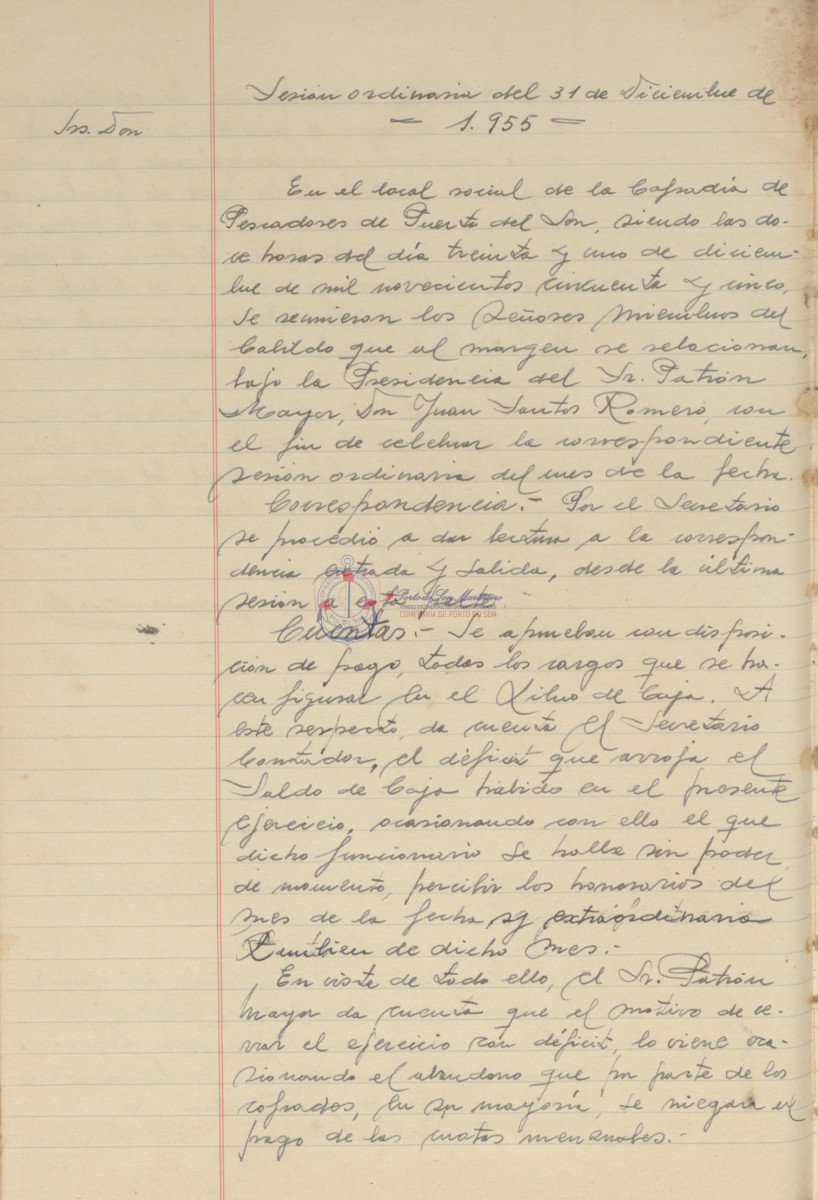 Sesión ordinaria del 31 de Diciembre de
— 1.955 —
Srs. Don
En el local social de la Cofradía de
Pescadores de Puerto del Son, siendo las do-
ce horas del día treinta y uno de diciem-
bre de mil novecientos cincuenta y cinco,
se reunieron los Señores Miembros del
Cabildo que al margen se relacionan,
bajo la Presidencia del Sr. Patrón
Mayor, Don Juan Santos Romero, con
el fin de celebrar la correspondiente
sesión ordinaria del mes de la fecha.
Correspondencia.- Por el Secretario
se procedió a dar lectura a la correspon-
dencia entrada y salida, desde la última
sesión a esta
Porto do Son Mariñeiro
CONFRARÍA DE PORTO DO SON
Cuentas.- Se aprueban con disposi-
ción de pago, todos los cargos que se ha-
cen figurar en el Libro de Caja. A
este respecto, da cuenta el Secretario
Contador, el déficit que arroja el
Saldo de Caja habido en el presente
ejercicio, ocasionando con ello el que
dicho funcionario se halle sin poder,
de momento, percibir los honorarios del
mes de la fecha y extraordinaria
tambien de dicho mes.-
En vista de todo ello, el Sr. Patrón
Mayor da cuenta que el motivo de ce-
rrar el ejercicio con déficit, lo viene oca-
sionando el abandono que por parte de los
cofrades, en su mayoría, se niegan al
pago de las cuotas mensuales.-